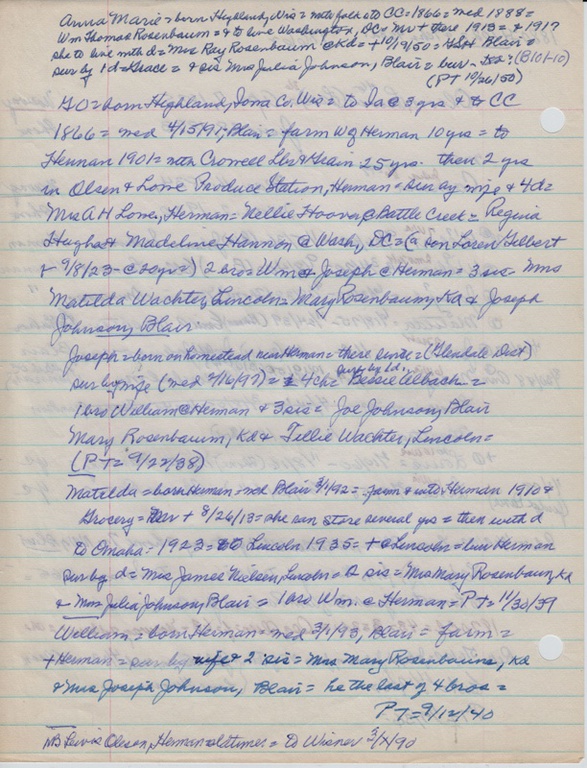 Anna Marie = born Highland, Wis = with folks to CC = 1866 = med 1888 =
Wm Thomas Rosenbaum = & to live Washington, DC = Mr + there 1913 = & 1917
she to live with d = Mrs Ray Rosenbaum @ Kd = + 10/19/50 = Blair =
sur by 1 d = Grace = & sis Mrs Julia Johnson, Blair = bur - (B 101-10)
(PT 10/26/50)
GO = born Highland, Iowa Co. Wis = to Ia @ 3 yrs & to CC
1866 = med 4/15/91, Blair = farm W of Herman 10 yrs = to
Herman 1901 = with Crowell Lbr & Grain 25 yrs. then 2 yrs
in Olsen & Lowe Produce Station, Herman = sur by wife & 4 d =
Mrs A H Lowe, Herman = Nellie Hoover @ Battle Creek = Regina
Hughes & Madeline Hannon @ Wash, DC = (a son Loren Gilbert
+ 9/8/23 - @ 20 yrs =) 2 bro = Wm & Joseph @ Herman = 3 sis = Mrs
Matilda Wachter, Lincoln = Mary Rosenbaum, Kd & Joseph
Johnson, Blair
Joseph = born on homestead near Herman = there since = (Glendale Dist)
sur by wife (med 2/16/97) = 4 ch = Bessie Albach =
1 bro William @ Herman & 3 sis = Joe Johnson, Blair
Mary Rosenbaum, Kd & Tillie Wachter, Lincoln =
(PT = 9/22/38)
Matilda = born Herman = med Blair 3/1/92 = farm & into Herman 1910 &
Grocery = + 8/26/13 = she ran store several yrs = then with d
to Omaha = 1923 = to Lincoln 1935 = + @ Lincoln = bur Herman
sur by d = Mrs James Nielsen, Lincoln = 2 sis = Mrs Mary Rosenbaum, Kd
& Mrs Julia Johnson, Blair = 1 bro Wm. @ Herman = PT = 11/30/39
William = born Herman = med 3/1/93, Blair = farm =
+ Herman = sur by wife & 2 sis = Mrs Mary Rosenbaum, Kd
& Mrs Joseph Johnson, Blair = he the last of 4 bros =
PT = 9/12/40
NB Lewis Oleson, Herman = oldtimer = to Wisner 3/X/90